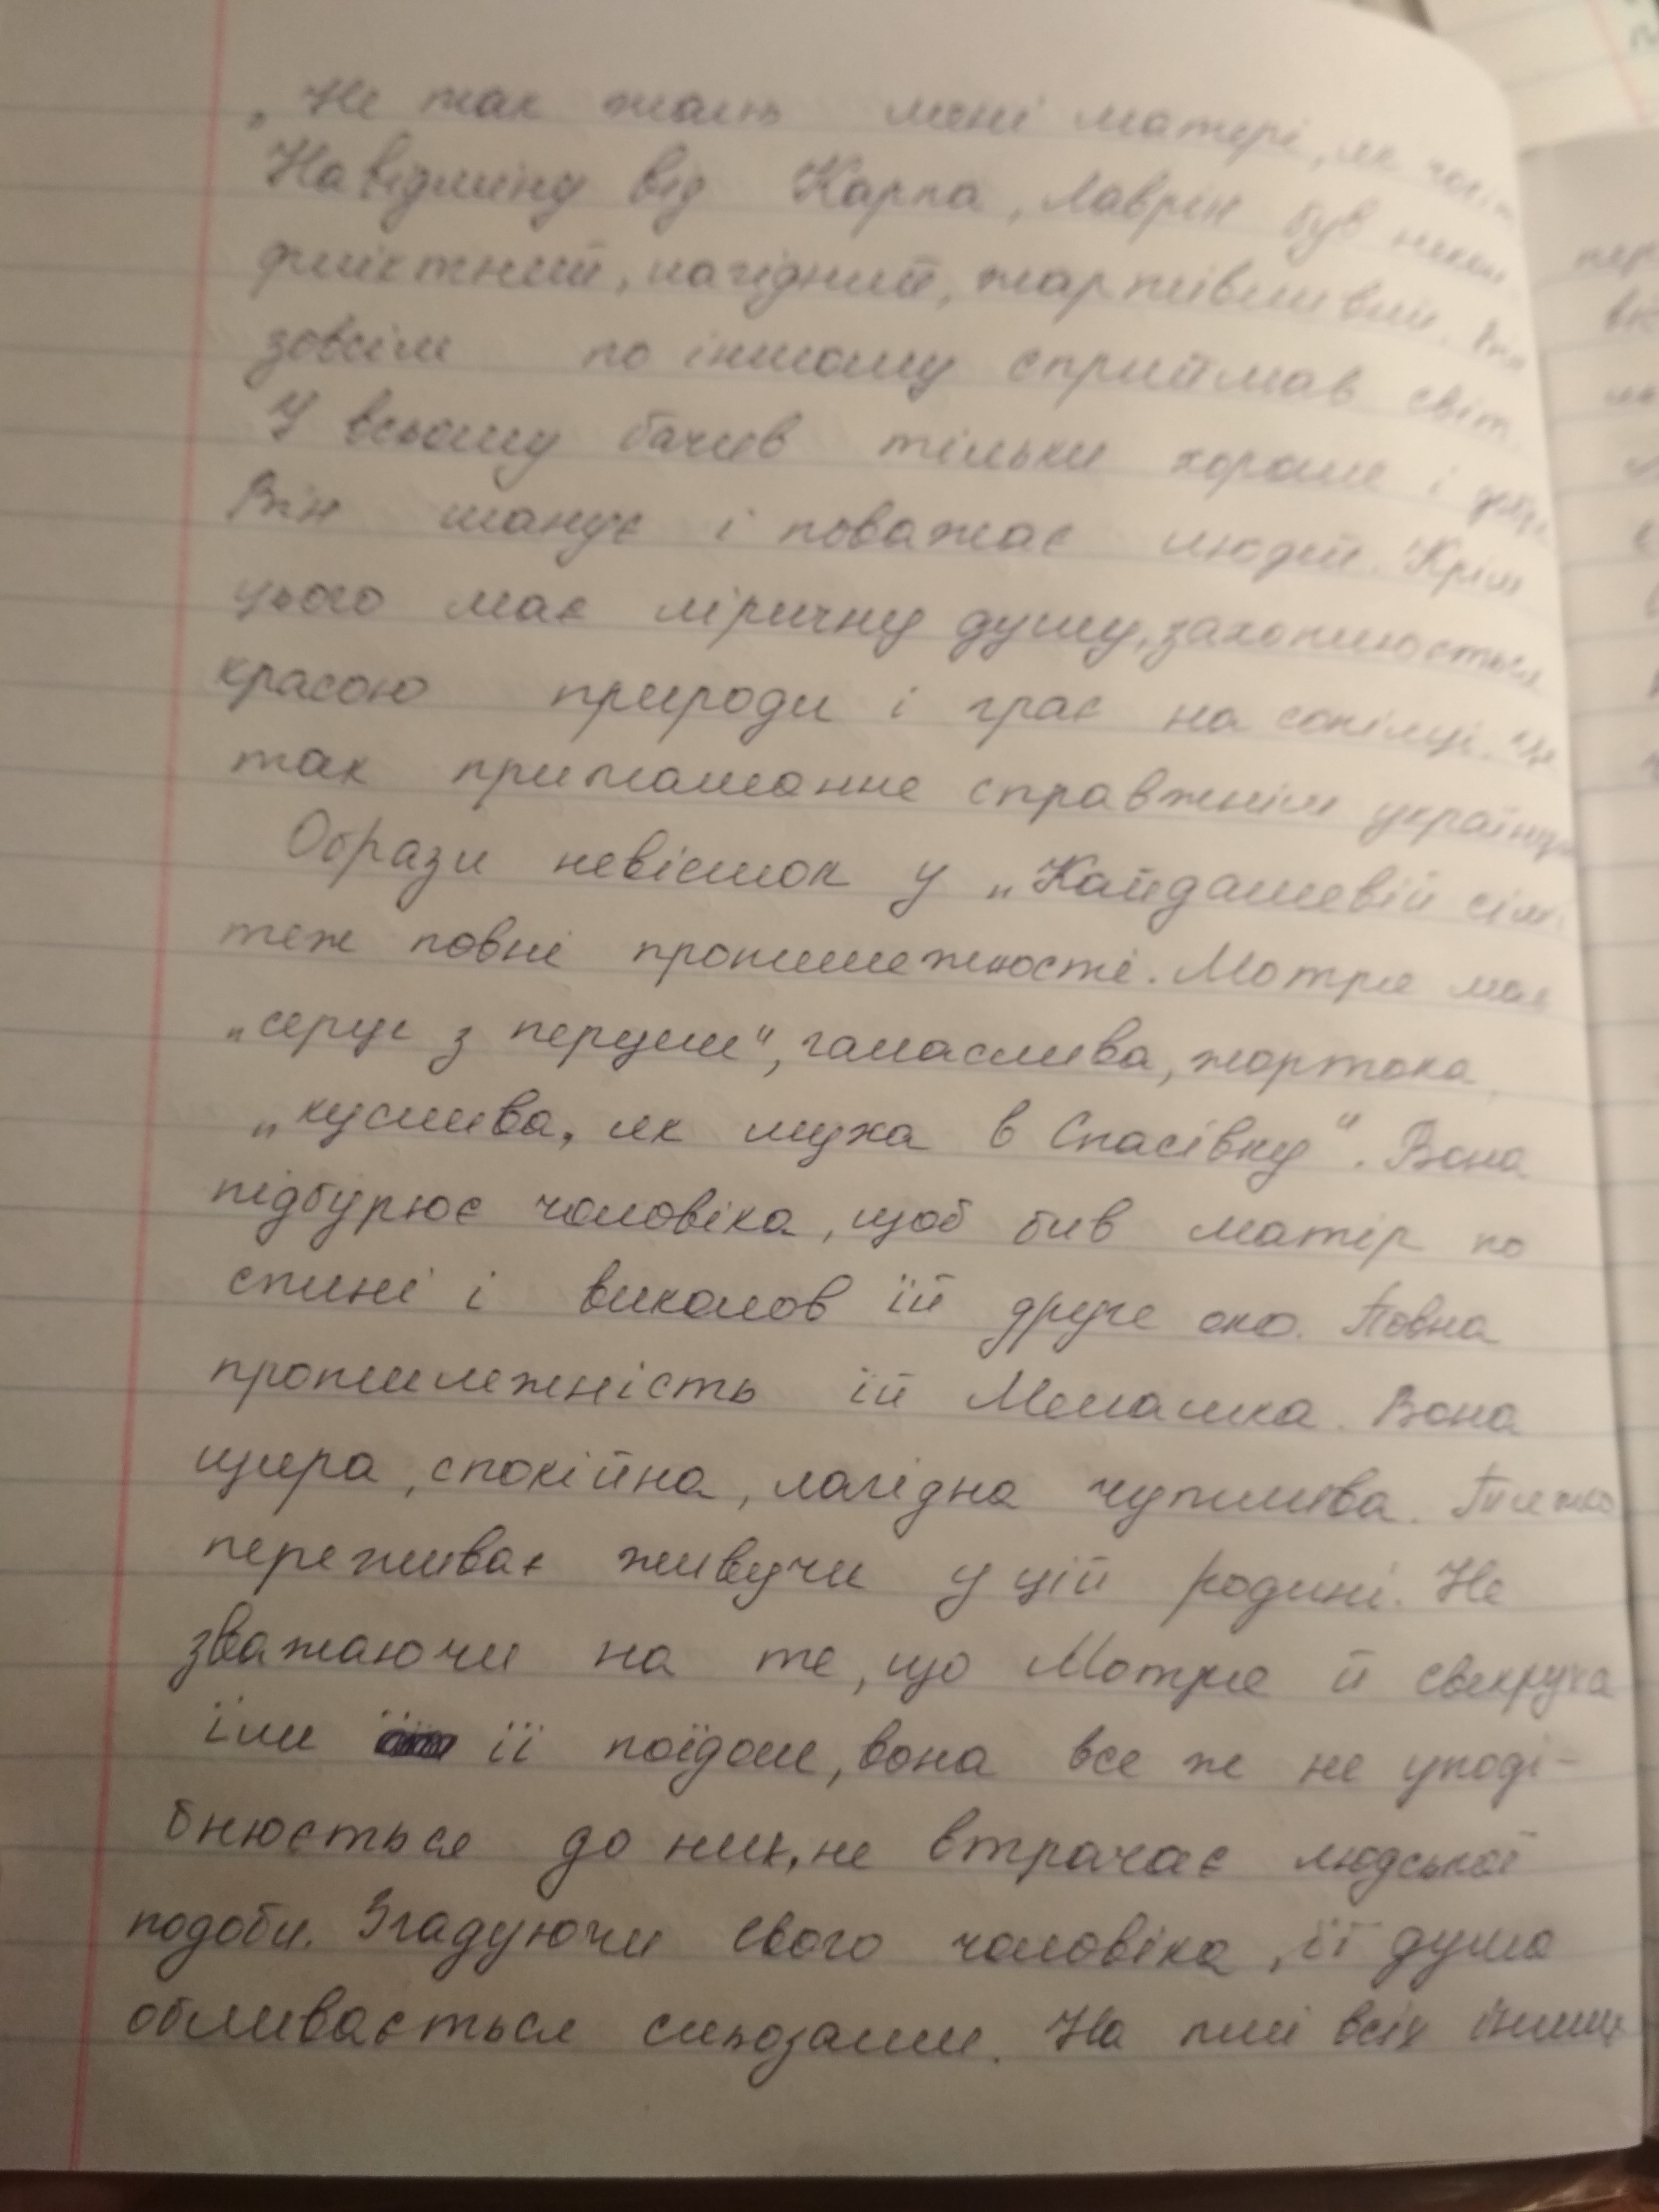 „Не так жаль мені матері, як чобіт
Навідміну від Карпа, Лаврін був
фліктний, лагідний, жартівливий. Він
зовсім по іншому сприймав світ.
У всьому бачив тільки хороше і добре
Він шанує і поважає людей. Крім
цього має ліричну душу, захоплюється
красою природи і грає на сопілці. Це
так притаманне справжнім українцям
Образи невісток у „Кайдашевій сім'ї
теж повні протилежності. Мотря має
„серце з перцем", галаслива, жортока,
„куслива, як муха в Спасівку". Вона
підбурює чоловіка, щоб бив матір по
спині і виколов їй друге око. Повна
протилежність їй Мелашка. Вона
щира, спокійна, лагідна чутлива. Тяжко
переживає живучи у цій родині. Не
зважаючи на те, що Мотря й свекруха
їли її поїдом, вона все ж не уподі-
бнюється до них, не втрачає людської
подоби. Згадуючи свого чоловіка, її душа
обливається сльозами. На тлі всіх інших